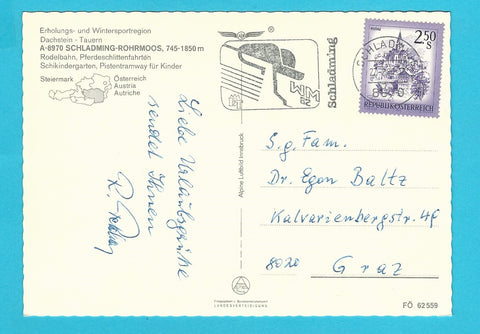 Erholungs- und Wintersportregion
Dachstein - Tauern
A-8970 SCHLADMING-ROHRMOOS, 745-1850 m
Rodelbahn, Pferdeschlittenfahrten
Schikindergarten, Pistentramway für Kinder
Steiermark
Österreich
Austria
Autriche
Liebe Urlaubsgrüße
sendet Ihnen
R.
Alpine Luftbild Innsbruck
WM
Schladming
SCHLADMING
8970
2.50
S
REPUBLIK ÖSTERREICH
S.g. Fam.
Dr. Egon Baltz
Kalvarienbergstr. 4g
8020 Graz
LANDESVERTEIDIGUNG
FÖ 62 559